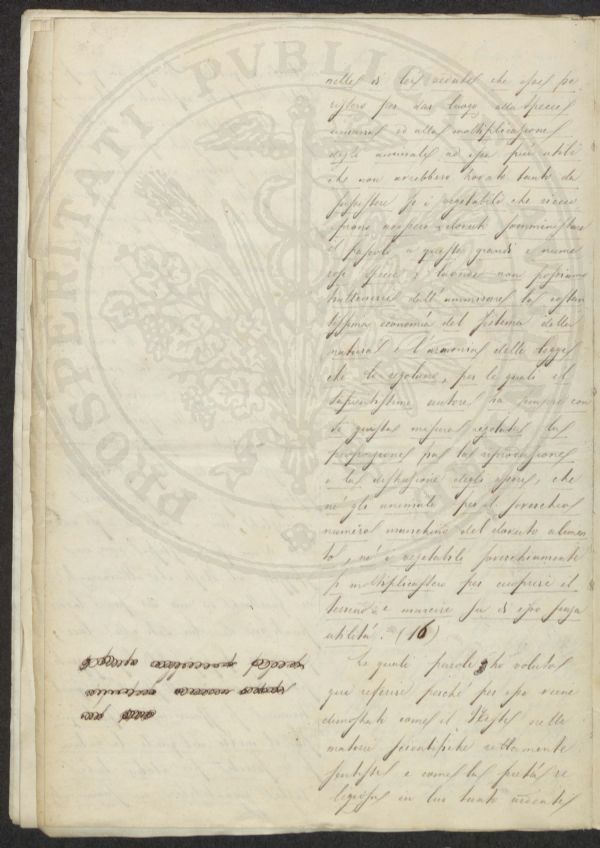 PROSPERITATI PVBLICAE
nelle di lei vedute che essi pe
rissero per dar luogo alla specie
umana ed alla moltiplicazione
degli animali ad essa più utili
che non avrebbero trovato tanto da
sussistere se i vegetabili che
avessero dovuto somministrare
il pascolo a queste grandi e nume
rose specie; laonde non possiamo
trattenerci dall'ammirare la costan
tissima economia del sistema della
natura e l'armonia delle leggi
che la regolano, per le quali il
sapientissimo autore ha sempre con
tal misura regolate le
proporzioni fra la riproduzione
e la distruzione degli esseri, che
nè gli animali per il soverchio
numero manchino del dovuto alimen
to, nè i vegetabili soverchiamente
si moltiplichino per coprire il
terreno e marcire su di esso senza
utilità. (16)
Le quali parole ho voluto
qui riferire poichè per esse viene
dimostrato come il Testi nelle
materie scientifiche rettamente
sentisse e come la pietà re
ligiosa in lui tanto ardente